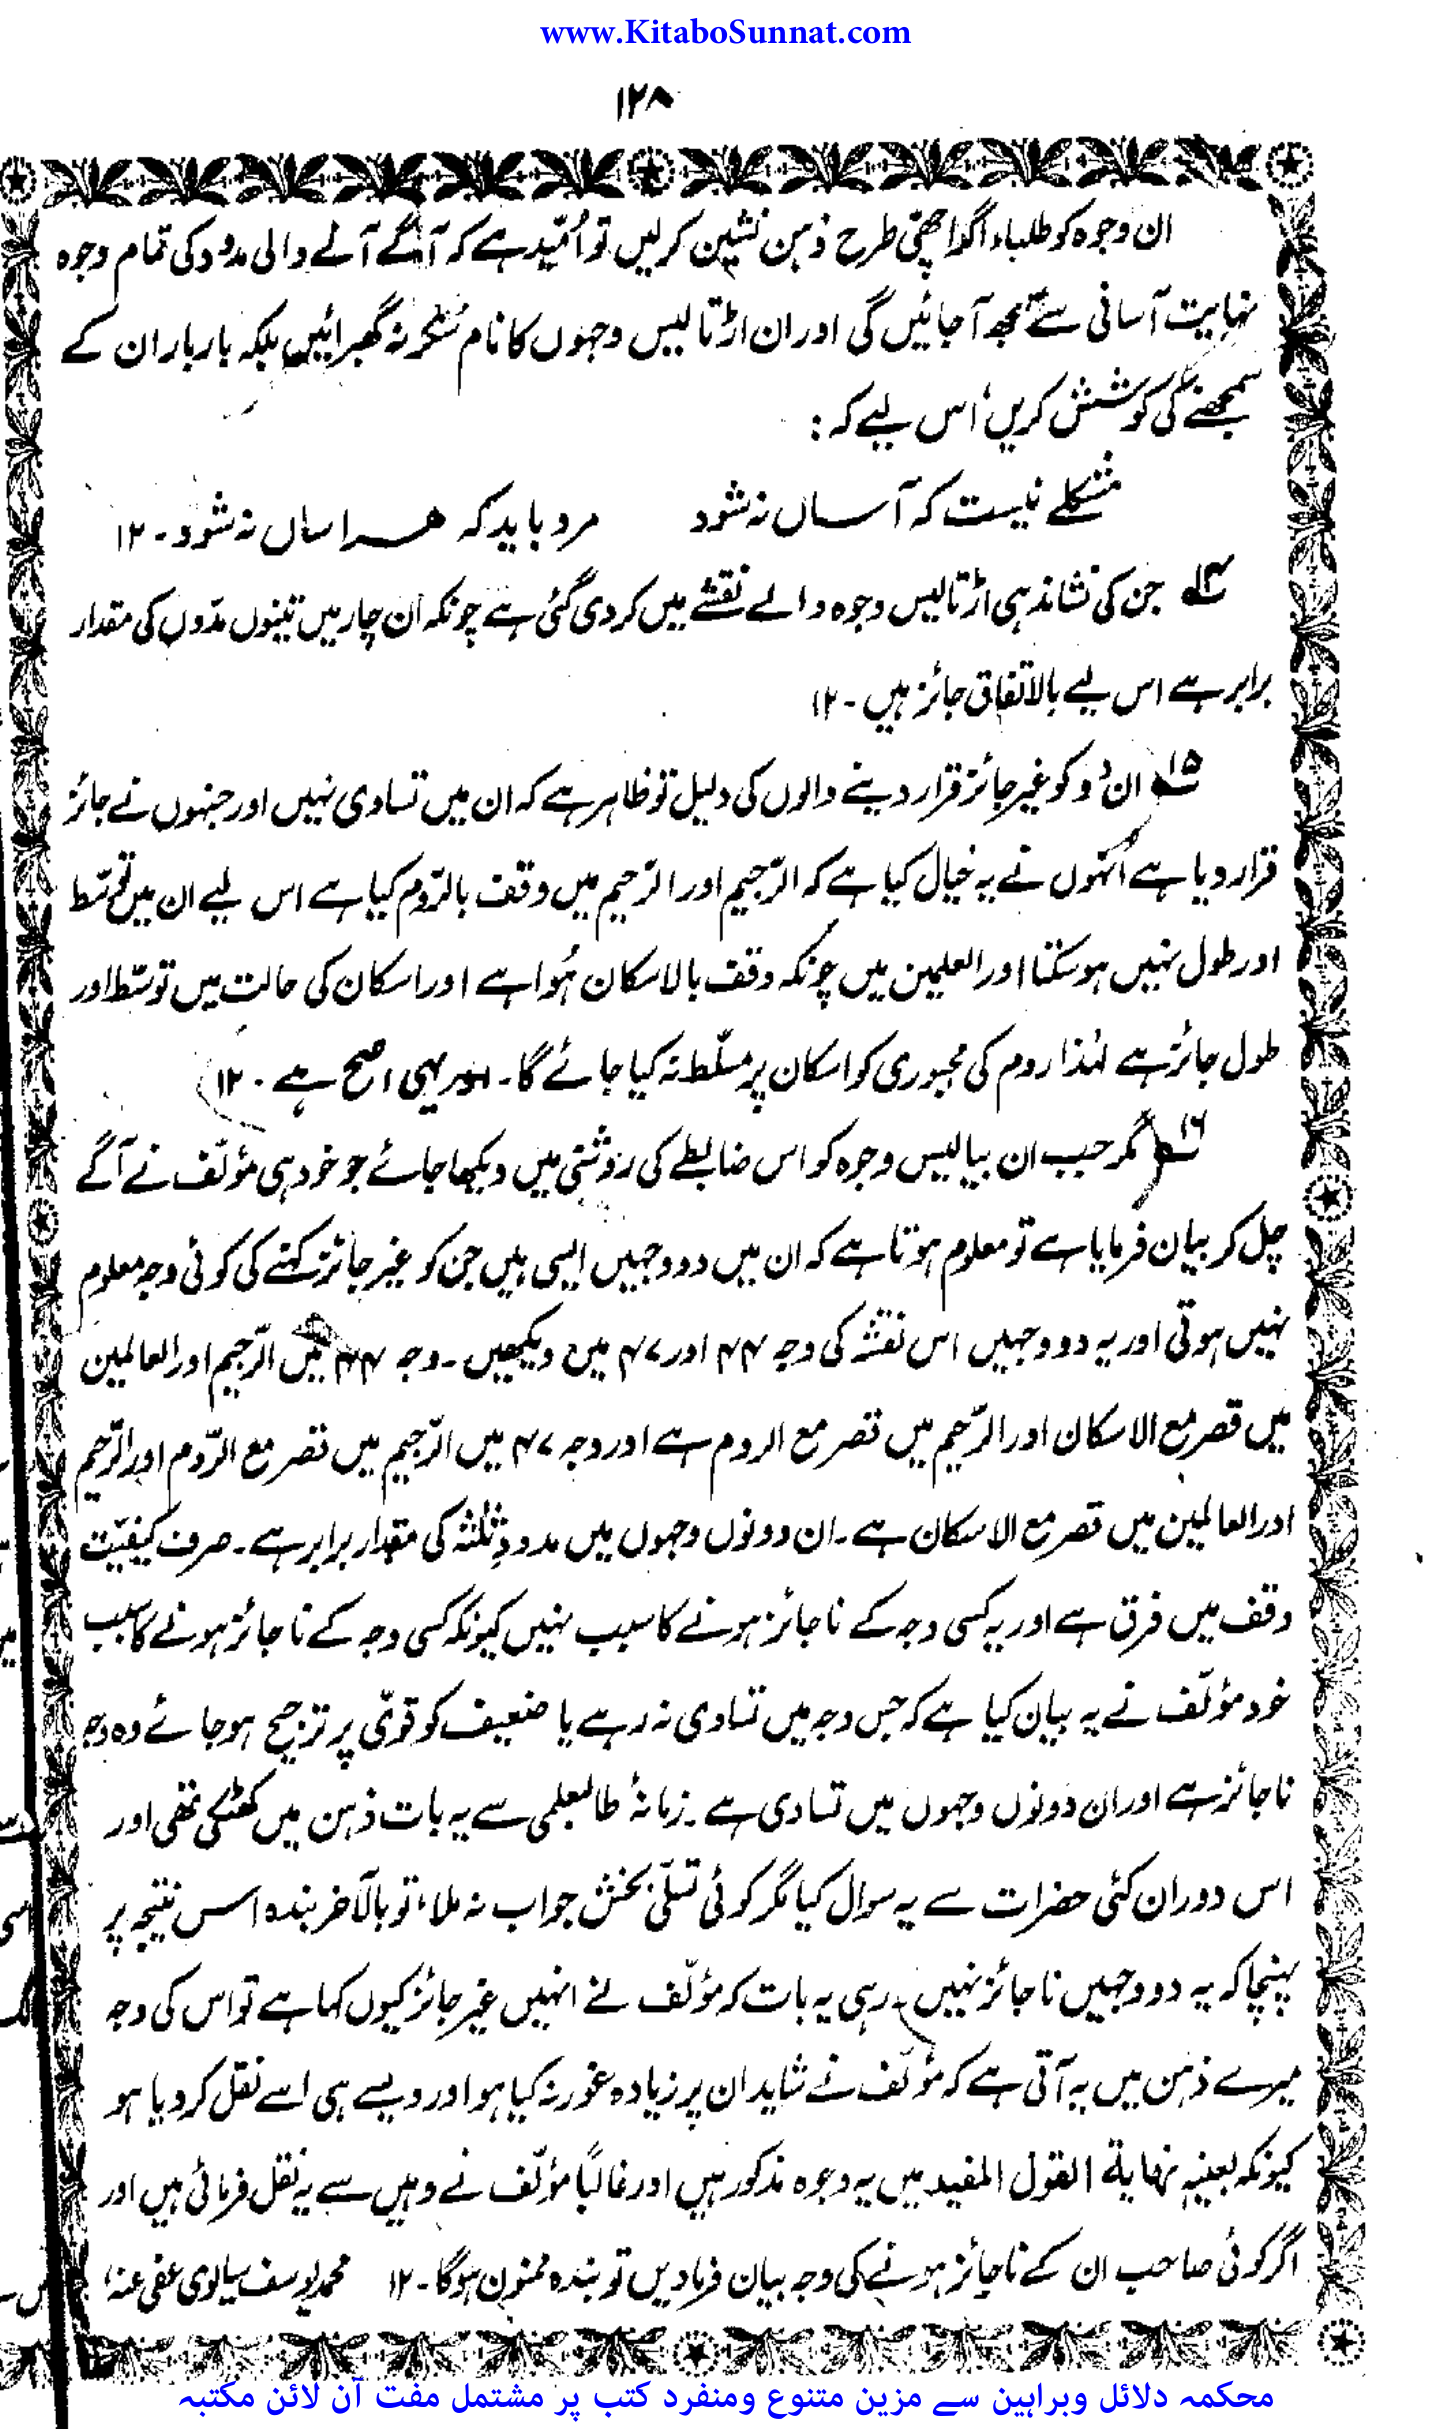 www.KitaboSunnat.com
۱۲۸
ان وجوہ کو طلباء اگر اچھی طرح ذہن نشین کرلیں تو اُمّید ہے کہ آگے آنے والی مدود کی تمام وجوہ
نہایت آسانی سے سمجھ آجائیں گی اور ان اڑتالیس وجہوں کا نام سُنکر نہ گھبرائیں بلکہ بار بار ان کے
سمجھنے کی کوشش کریں اس لیے کہ :
مشکلے نیست کہ آساں نہ شود مرد باید کہ ھراساں نہ شود - ۱۲
۱۴؎ جن کی نشاندہی اڑتالیس وجوہ والے نقشے میں کردی گئی ہے چونکہ ان چار میں تینوں مدّوں کی مقدار
برابر ہے اس لیے بالاتفاق جائز ہیں - ۱۲
۱۵؎ ان دو کو غیر جائز قرار دینے والوں کی دلیل تو ظاہر ہے کہ ان میں تساوی نہیں اور جنہوں نے جائز
قرار دیا ہے اُنہوں نے یہ خیال کیا ہے کہ الرّجیم اور الرّحیم میں وقف بالرّوم کیا ہے اس لیے ان میں توسّط
اور طول نہیں ہوسکتا اور العلمین میں چونکہ وقف بالاسکان ہُوا ہے اور اسکان کی حالت میں توسّط اور
طول جائز ہے لہٰذا روم کی مجبوری کو اسکان پر مسلّط نہ کیا جائے گا۔ اور یہی اصح ہے - ۱۲
۱۶؎ مگر جب ان بیالیس وجوہ کو اس ضابطے کی روشنی میں دیکھا جائے جو خود ہی مؤلّف نے آگے
چل کر بیان فرمایا ہے تو معلوم ہوتا ہے کہ ان میں دو وجہیں ایسی ہیں جن کو غیر جائز کہنے کی کوئی وجہ معلوم
نہیں ہوتی اور یہ دو وجہیں اس نقشہ کی وجہ ۴۴ اور ۴۷ میں دیکھیں۔ وجہ ۴۴ میں الرّجیم اور العالمین
میں قصر مع الاسکان اور الرّحیم میں قصر مع الروم ہے اور وجہ ۴۷ میں الرّجیم میں قصر مع الرّوم اور الرّحیم
اور العالمین میں قصر مع الاسکان ہے۔ ان دونوں وجہوں میں مدودِ ثلٰثہ کی مقدار برابر ہے۔ صرف کیفیّت
وقف میں فرق ہے اور یہ کسی وجہ کے ناجائز ہونے کا سبب نہیں کیونکہ کسی وجہ کے ناجائز ہونے کا سبب
خود مؤلّف نے یہ بیان کیا ہے کہ جس وجہ میں تساوی نہ رہے یا ضعیف کو قوّی پر ترجیح ہوجائے وہ وجہ
ناجائز ہے اور ان دونوں وجہوں میں تساوی ہے۔ زمانۂ طالبعلمی سے یہ بات ذہن میں کھٹکی تھی اور
اس دوران کئی حضرات سے یہ سوال کیا مگر کوئی تسلّی بخش جواب نہ ملا، تو بالآخر بندہ اسس نتیجہ پر
پہنچا کہ یہ دو وجہیں ناجائز نہیں۔ رہی یہ بات کہ مؤلّف نے انہیں غیر جائز کیوں کہا ہے تو اس کی وجہ
میرے ذہن میں یہ آتی ہے کہ مؤلّف نے شاید ان پر زیادہ غور نہ کیا ہو اور ویسے ہی اسے نقل کردیا ہو
کیونکہ بعینہٖ نہایة القول المفید میں یہ وجوہ مذکور ہیں اور غالبًا مؤلّف نے وہیں سے یہ نقل فرمائی ہیں اور
اگر کوئی صاحب ان کے ناجائز ہونے کی وجہ بیان فرمادیں تو بندہ ممنون ہوگا - ۱۲ محمد یوسف سیالوی عفی عنہ
محکمہ دلائل وبراہین سے مزین متنوع ومنفرد کتب پر مشتمل مفت آن لائن مکتبہ